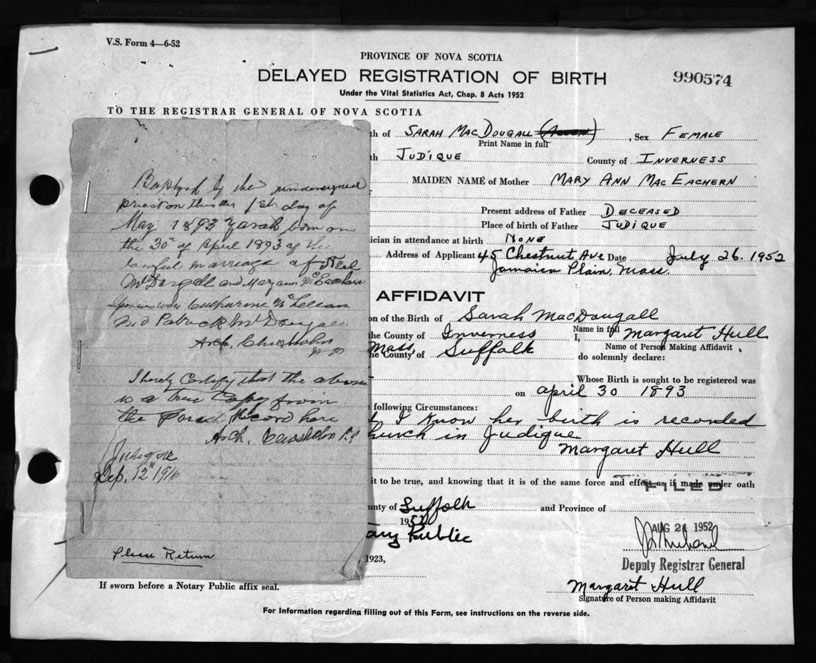 V.S. Form 4—6-52
PROVINCE OF NOVA SCOTIA
DELAYED REGISTRATION OF BIRTH
990574
Under the Vital Statistics Act, Chap. 8 Acts 1952
TO THE REGISTRAR GENERAL OF NOVA SCOTIA
th of SARAH MACDOUGALL , Sex FEMALE
Print Name in full
th JUDIQUE County of INVERNESS
MAIDEN NAME of Mother MARY ANN MACEACHERN
Present address of Father DECEASED
Place of birth of Father JUDIQUE
ician in attendance at birth NONE
Address of Applicant 45 Chestnut Ave Date July 26. 1952
Jamaica Plain, Mass.
AFFIDAVIT
on of the Birth of Sarah MacDougall
Name in full
he County of Inverness I, Margaret Hull
Mass. Name of Person Making Affidavit
he County of Suffolk do solemnly declare:
Whose Birth is sought to be registered was
on april 30 1893
following Circumstances:
I know her birth is recorded
hurch in Judique
Margaret Hull
it to be true, and knowing that it is of the same force and effect as if made under oath
FILED
unty of Suffolk and Province of
195
AUG 21 1952
ary Public
Deputy Registrar General
1923,
If sworn before a Notary Public affix seal.
Margaret Hull
Signature of Person making Affidavit
For Information regarding filling out of this Form, see instructions on the reverse side.
Baptized by the undersigned
priest on this 1st day of
May 1893 Sarah born on
the 30th of April 1893 of the
lawful marriage of Neil
McDougall and Mary ann McEachern
Sponsors Catharine McLellan
and Patrick McDougall
Arch. Chisholm
P.P.
I hereby Certify that the above
is a true Copy from
the Parish Record here
Arch. Chisholm P.P.
Judique
Sep. 12th 1916
Please Return